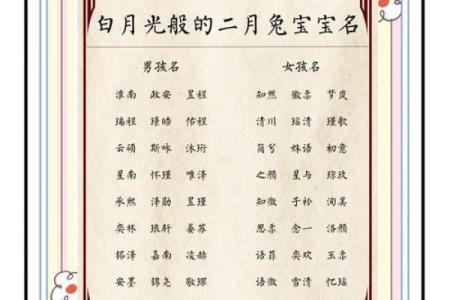 白月光般的二月兔宝宝名
男孩名 女孩名
淮南 政安 昱程 知然 徽柔 梦岚
瑞程 璟皓 佑程 清川 瑶清 瑾歌
云硕 斯咏 沐珩 简兮 姝语 初意
星南 怀瑾 唯泽 之颜 星与 琼玖
承熙 泽勋 昱瑾 知微 于衿 洵美
奕林 琅轩 晏苏 思柔 念一 洛颜
铭泽 嘉南 凌赫 语菲 奕欢 玉柔
安墨 锦尧 敬琛 语微 雪清 忆瑶